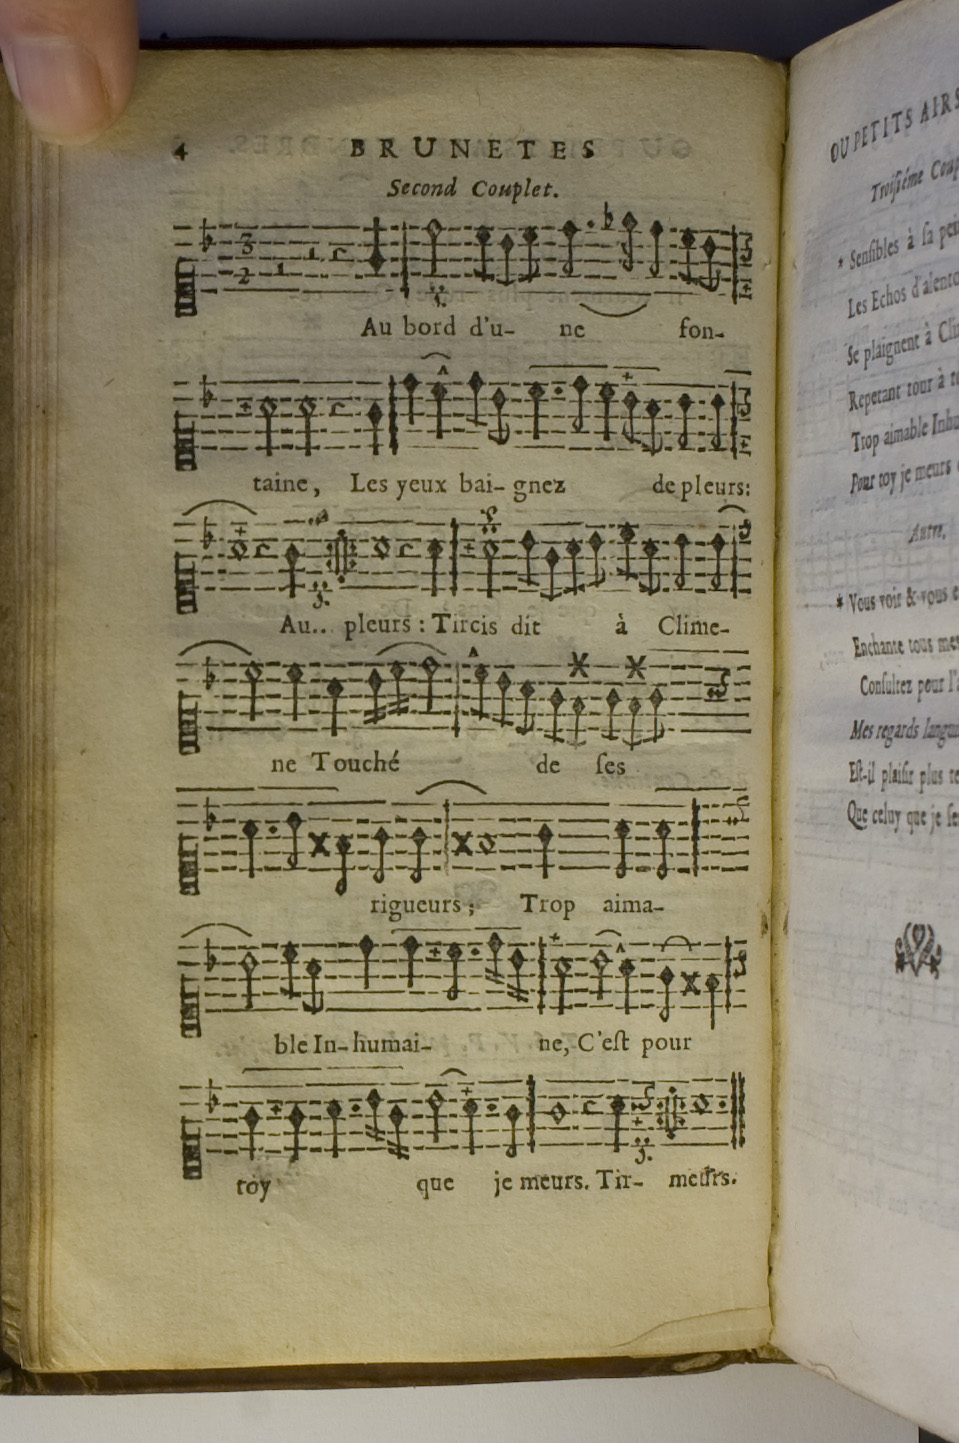 4 BRUNETES
Second Couplet.
3
2
Au bord d'u- ne fon-
taine, Les yeux bai- gnez de pleurs:
Au.. pleurs : Tircis dit à Clime-
ne Touché de ses
rigueurs ; Trop aima-
ble In-humai- ne, C'est pour
toy que je meurs. Tir- meurs.
OU PETITS AIRS
Troisiéme Coup
* Sensibles à sa pei
Les Echos d'alento
Se plaignent à Cli
Repetant tour à to
Trop aimable Inhu
Pour toy je meurs
Autre.
* Vous voir & vous e
Enchante tous me
Consultez pour l'a
Mes regards langui
Est-il plaisir plus te
Que celuy que je se